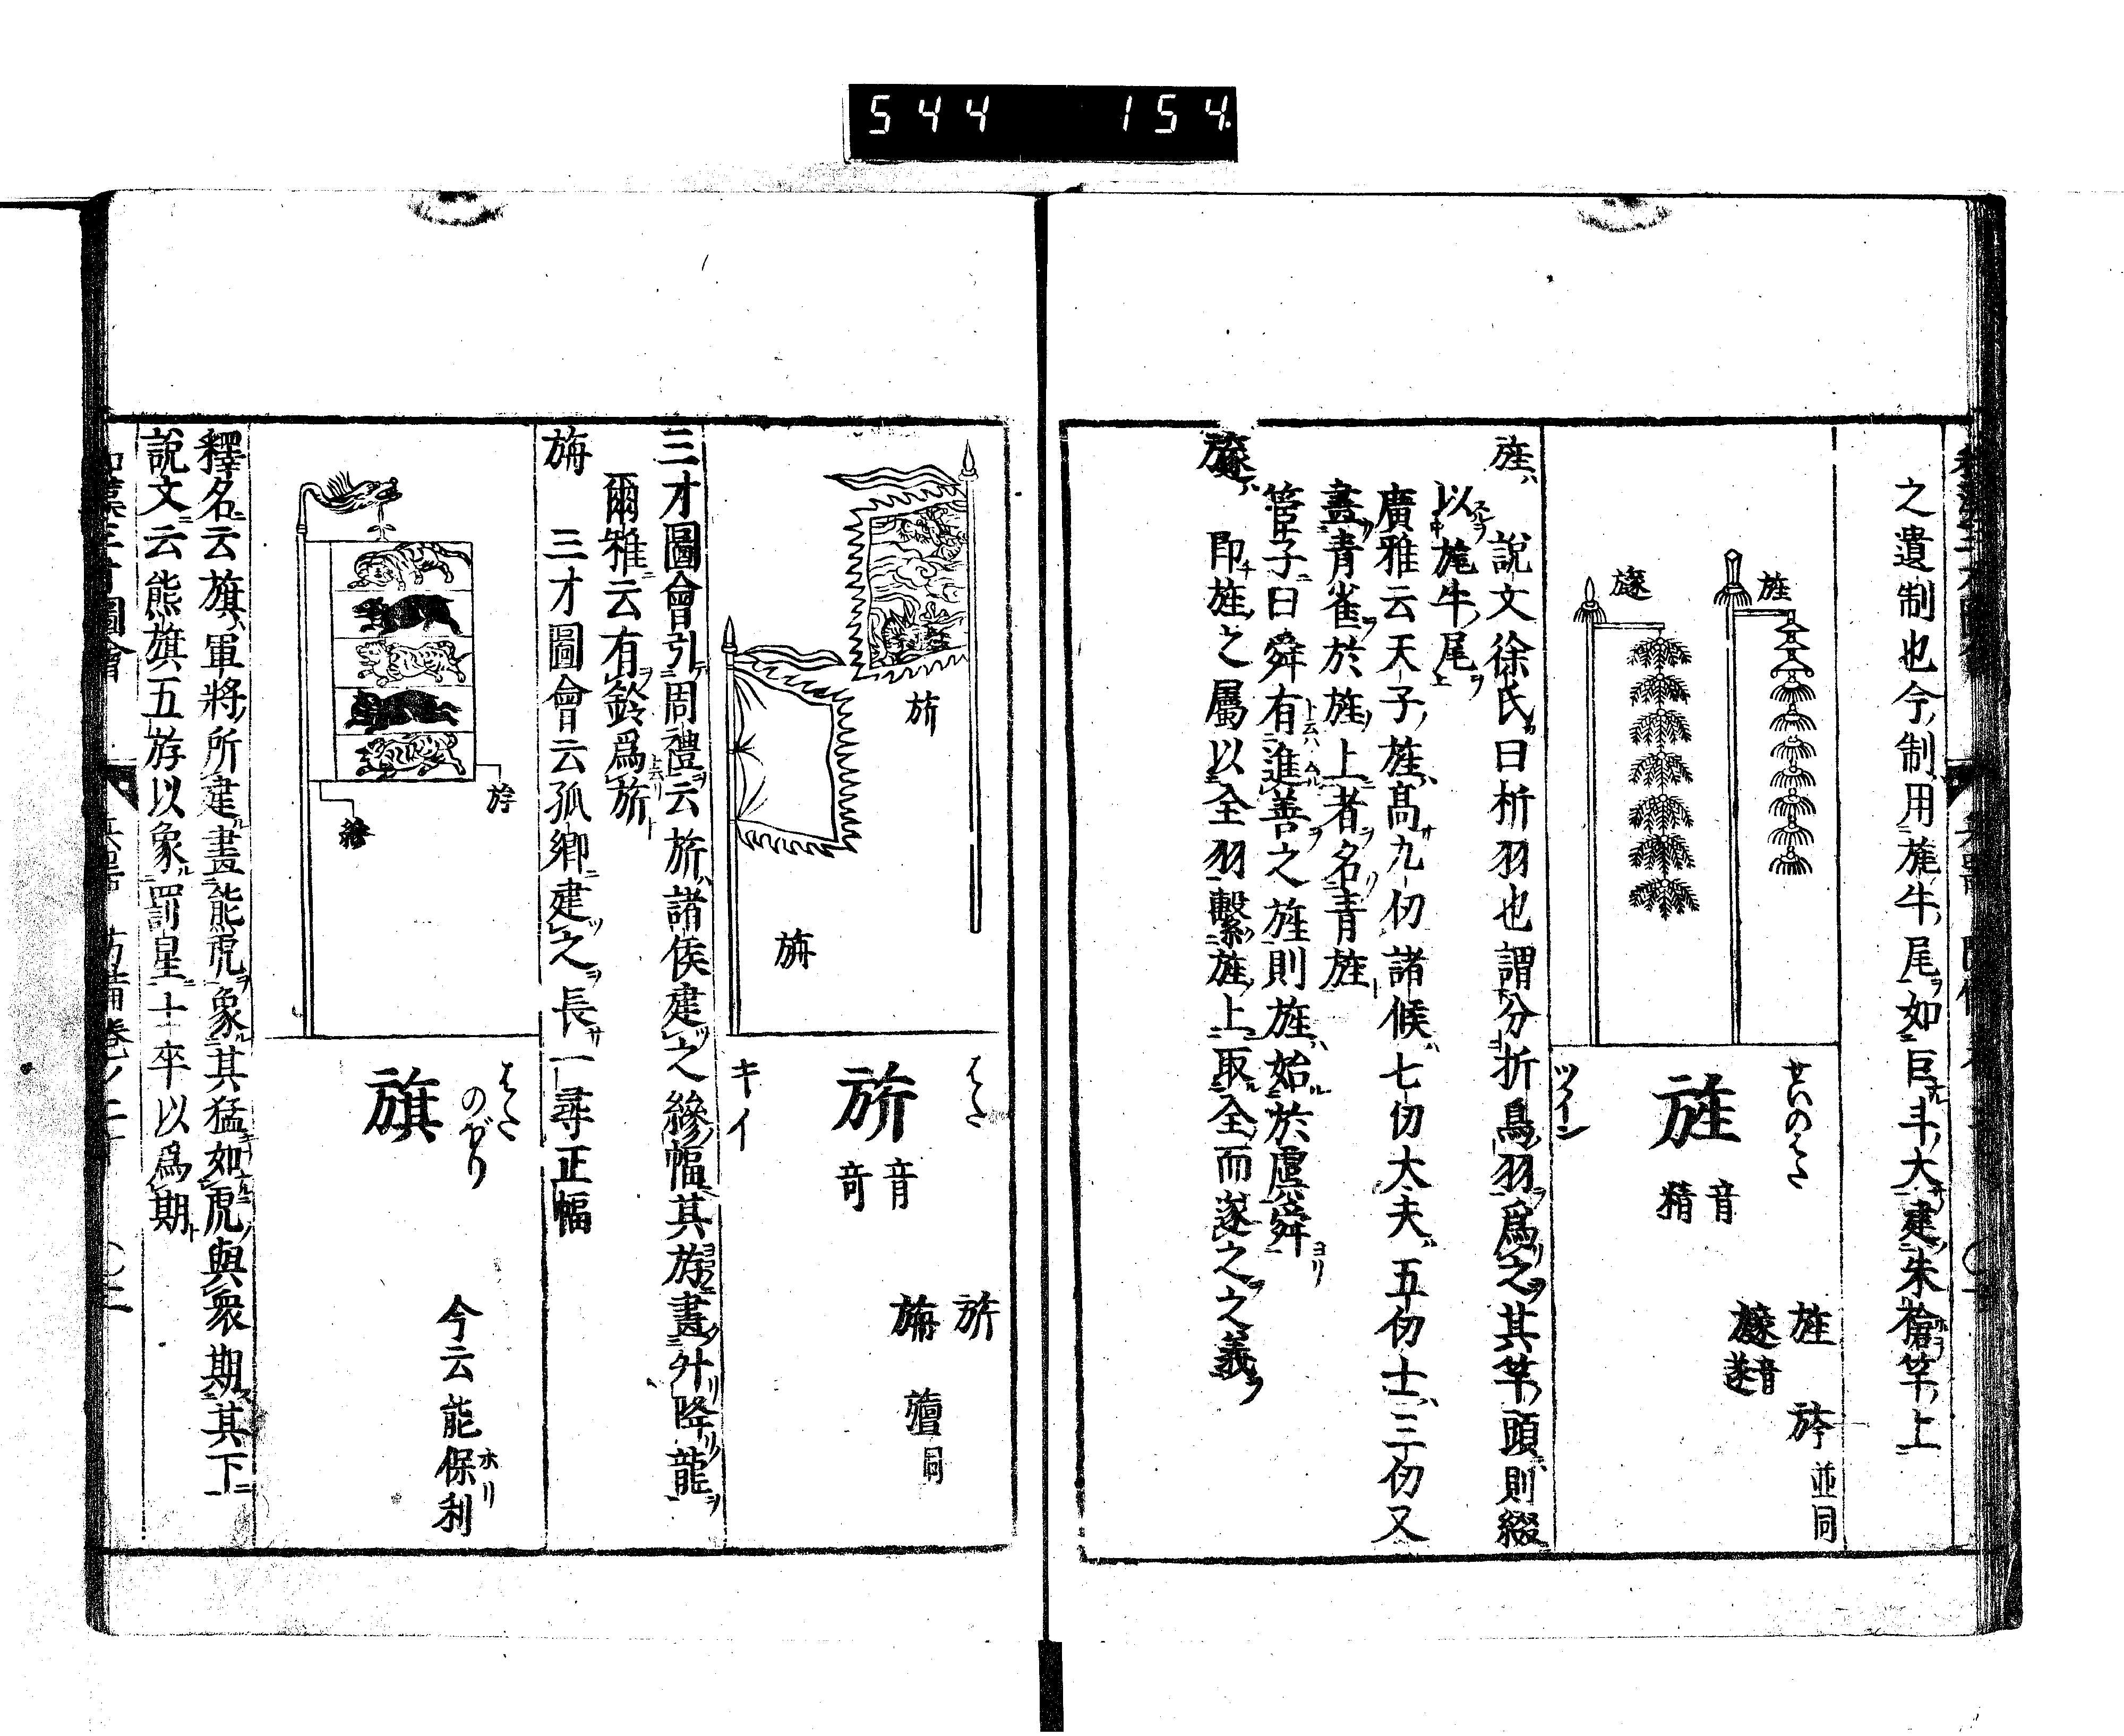 544 154
之遺制也今制用旄牛尾如巨斗大建朱檐竿上
旌
旞
せいのはた
旌
音精
ツイン
旌
旍並同
旞音遂
旌 說文徐氏曰析羽也謂分折鳥羽爲之其竿頭則綴
以旄牛尾
廣雅云天子旌高九仞諸候七仞大夫五仞士三仞又
畫青雀於旌上者名青旌
管子曰舜有進善之旌則旌始於虞舜
旞 即旌之屬以全羽繫旌上取全而遂之之義
旂
旃
はた
旂
音奇
キイ
旂
旃 旜同
三才圖會引周禮云旂諸侯建之縿幅其斿畫升降龍
爾雅云有鈴爲旂
旃 三才圖會云孤卿建之長一尋正幅
斿
縿
はた
のぼり
旗
今云能保利
ホリ
釋名云旗軍將所建畫熊虎象其猛如虎與衆期其下
說文云熊旗五斿以象罰星士卒以爲期